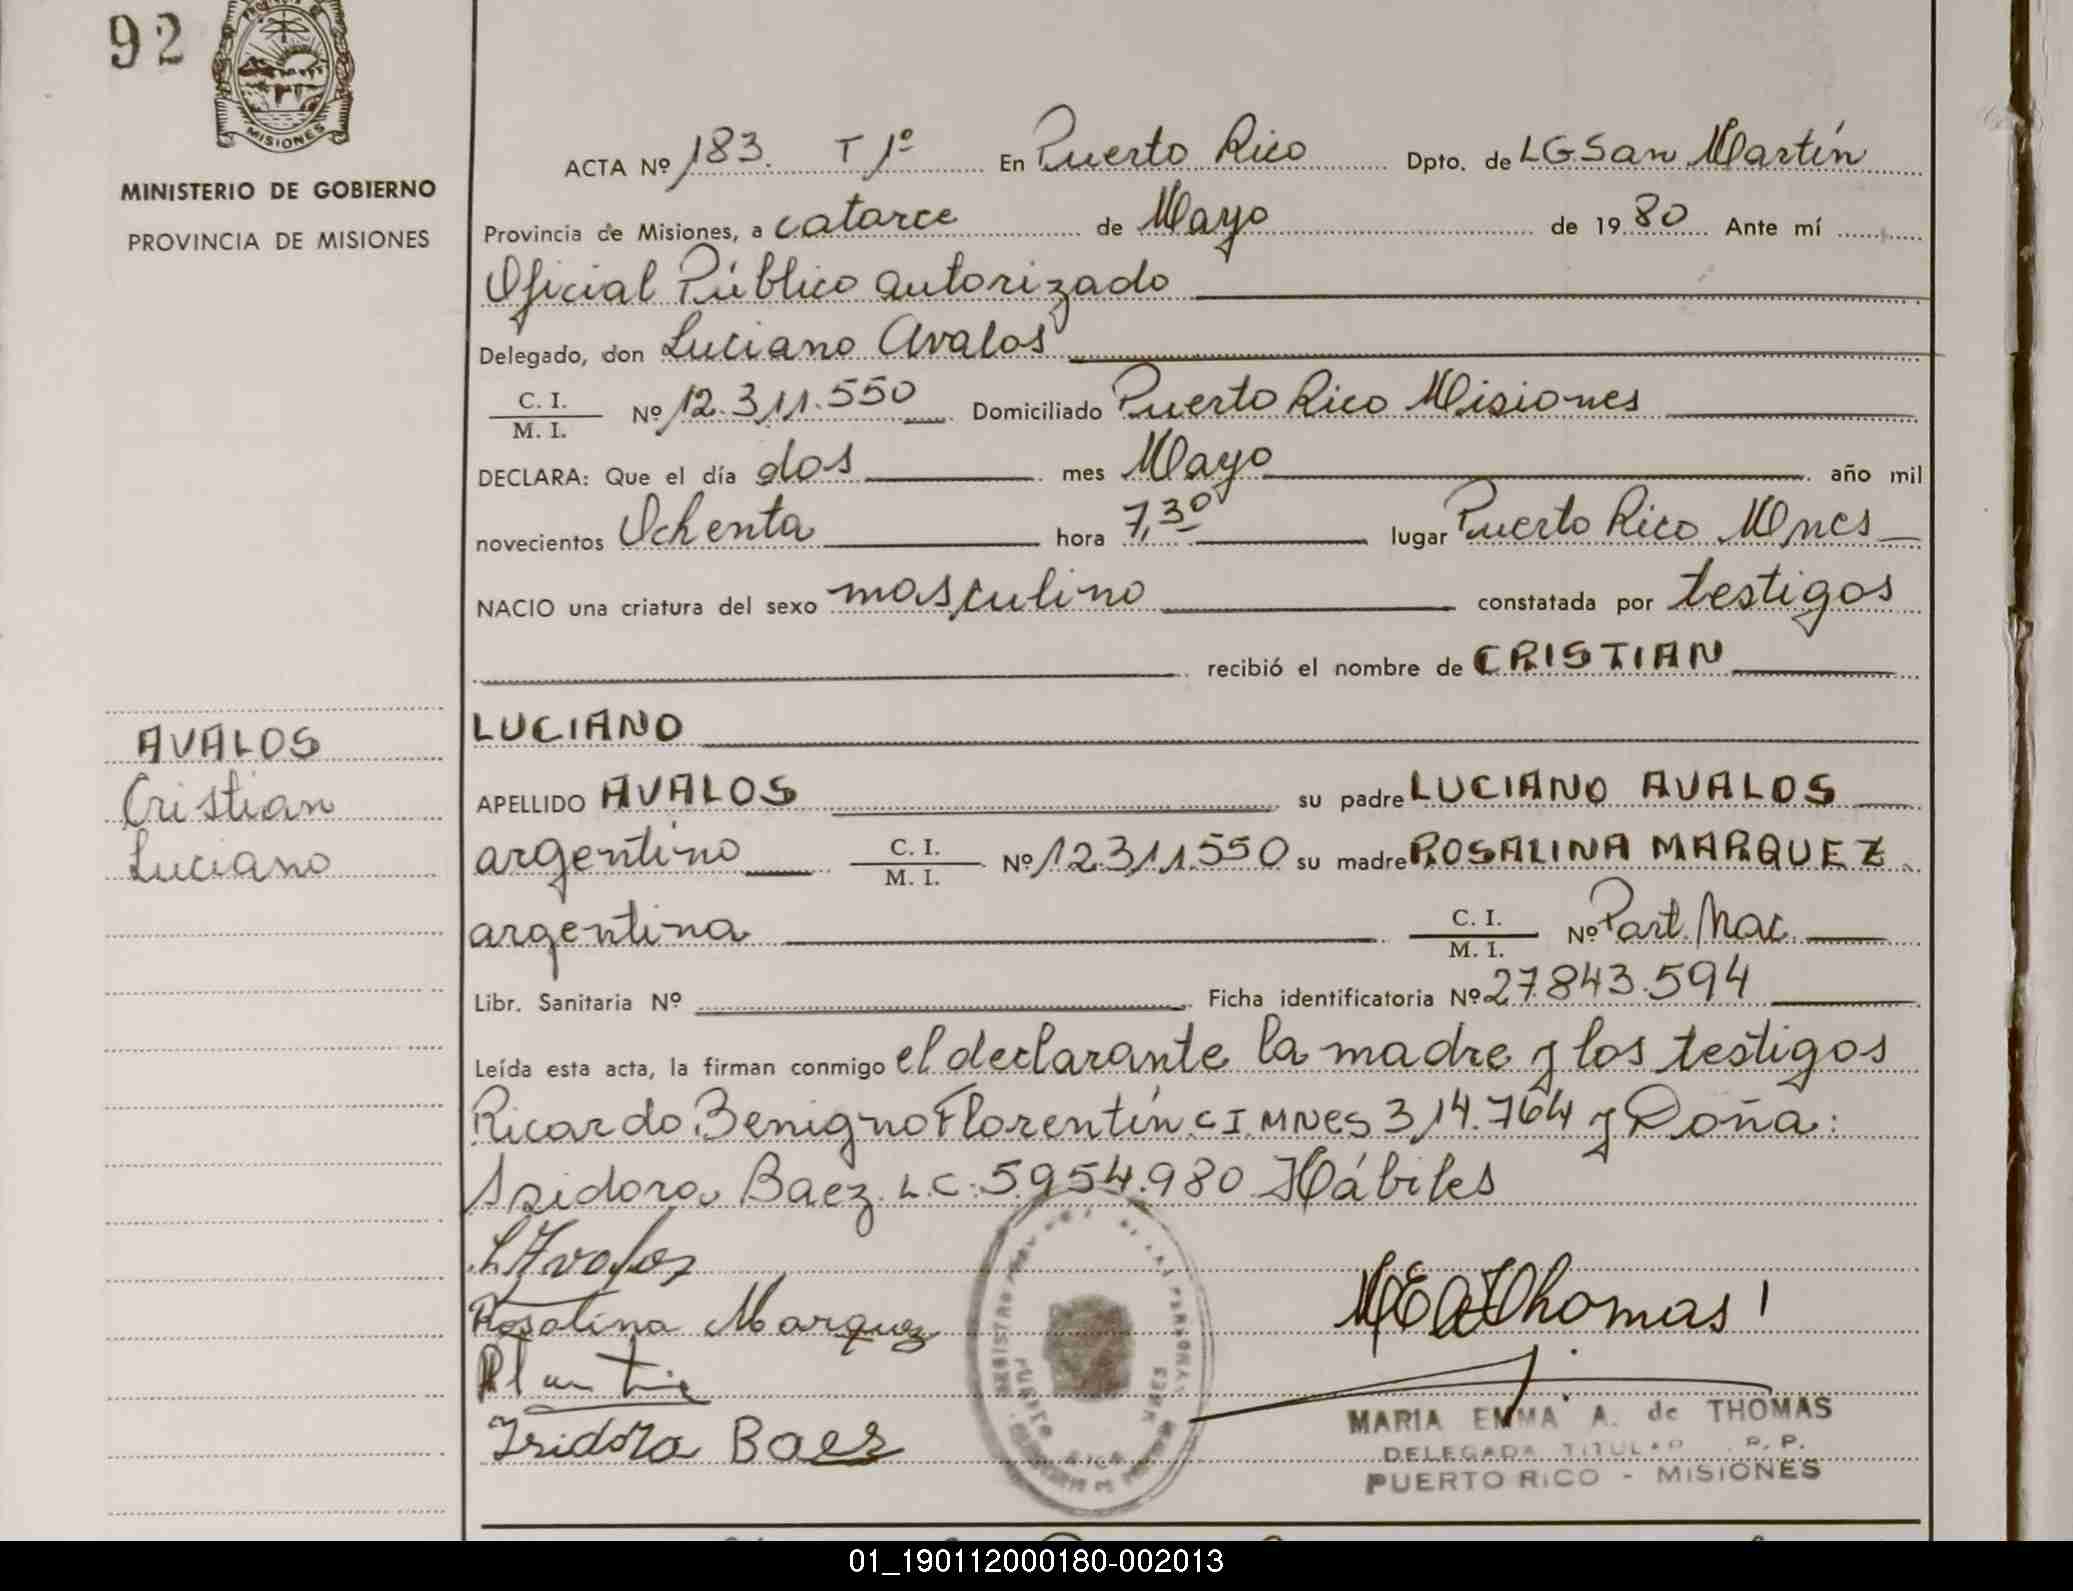 92
MISIONES
MINISTERIO DE GOBIERNO
PROVINCIA DE MISIONES
ACTA Nº 183. T 1º En Puerto Rico Dpto. de LG San Martín
Provincia de Misiones, a catorce de Mayo de 1980 Ante mí
Oficial Público autorizado
Delegado, don Luciano Avalos
C. I. / M. I. Nº 12.311.550 Domiciliado Puerto Rico Misiones
DECLARA: Que el día dos mes Mayo año mil
novecientos Ochenta hora 7,30 lugar Puerto Rico Mnes
NACIO una criatura del sexo masculino constatada por testigos
recibió el nombre de CRISTIAN
LUCIANO
AVALOS
Cristian
Luciano
APELLIDO AVALOS su padre LUCIANO AVALOS
argentino C. I. / M. I. Nº 12.311.550 su madre ROSALINA MARQUEZ
argentina C. I. / M. I. Nº Part. Nac.
Libr. Sanitaria Nº Ficha identificatoria Nº 27.843.594
Leída esta acta, la firman conmigo el declarante la madre y los testigos
Ricardo Benigno Florentín C I. MNES 314.764 y Doña:
Isidora Baez L.C. 5.954.980 Hábiles
L Avalos
Rosalina Marquez
Isidora Baez
M E A Thomas
MARIA EMMA A. de THOMAS
DELEGADA TITULAR R. P.
PUERTO RICO - MISIONES
01_190112000180-002013